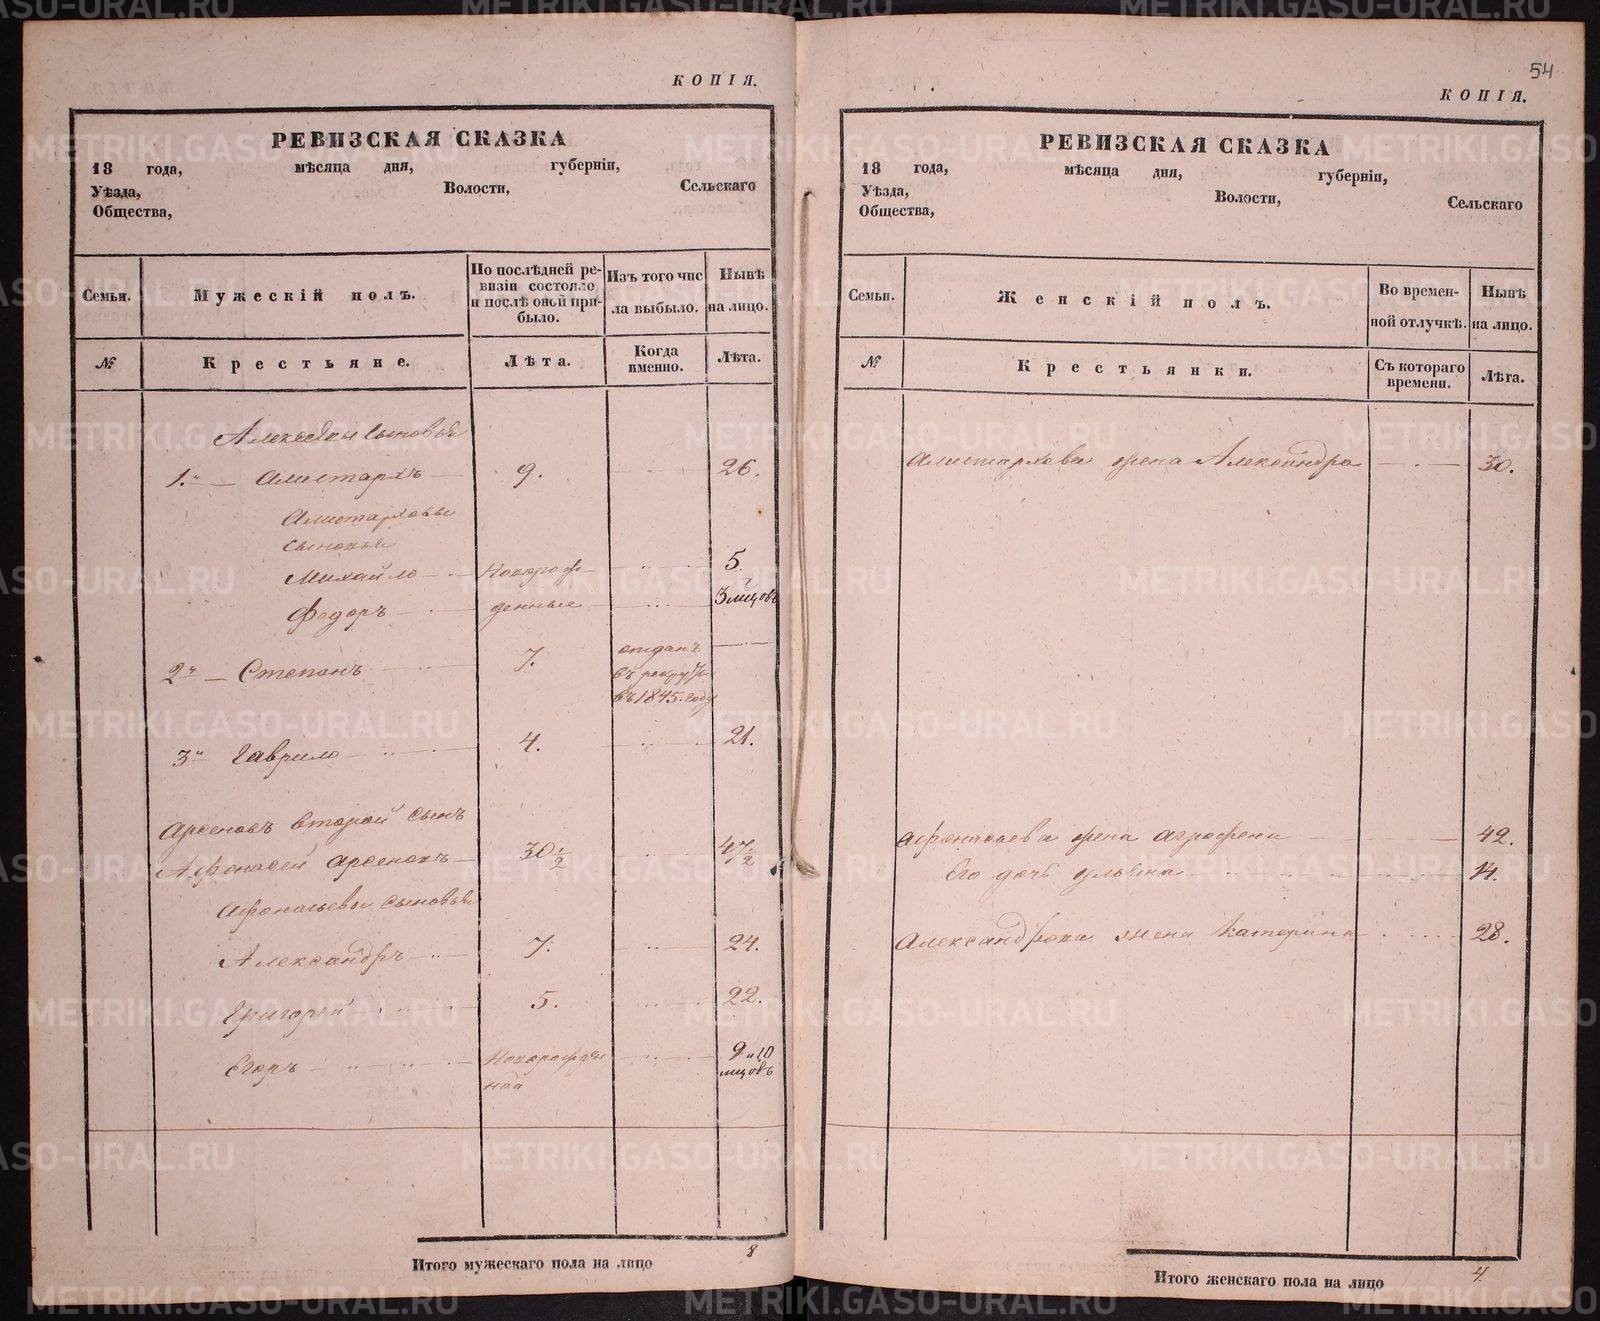 КОПІЯ.
РЕВИЗСКАЯ СКАЗКА
18 года, мѣсяца дня, губерніи,
Уѣзда, Волости, Сельскаго
Общества,
Семьи.
Мужескій полъ.
По послѣдней ре-
визіи состояло
и послѣ оной при-
было.
Изъ того чис
ла выбыло.
Нынѣ
на лицо.
№
Крестьяне.
Лѣта.
Когда
именно.
Лѣта.
Алексѣевы сыновья
1.й Алистархъ 9. 26.
Алистарховы
сыновья
Михайло Новорож- 5.
Федоръ денные 3 мѣцовъ
2й Степанъ 7. отданъ
въ рекруты
въ 1845. году
3й Гаврило 4. 21.
Арсеновъ второй сынъ
Афонасей Арсеновъ 30 1/2 47 1/2
Афонасьевы сыновья
Александръ 7. 24.
Григорей 5. 22.
Егоръ Новорожде 9 и 10
ной мѣцовъ
Итого мужескаго пола на лицо 8
54
КОПІЯ.
РЕВИЗСКАЯ СКАЗКА
18 года, мѣсяца дня, губерніи,
Уѣзда, Волости, Сельскаго
Общества,
Семьи.
Женскій полъ.
Во времен-
ной отлучкѣ.
Нынѣ
на лицо.
№
Крестьянки.
Съ котораго
времени.
Лѣта.
Алистархова жена Александра 30.
Афонасьева жена Агрофена 42.
Его дочь Ульяна 14.
Александрова жена Катерина 28.
Итого женскаго пола на лицо 4.
METRIKI.GASO-URAL.RU